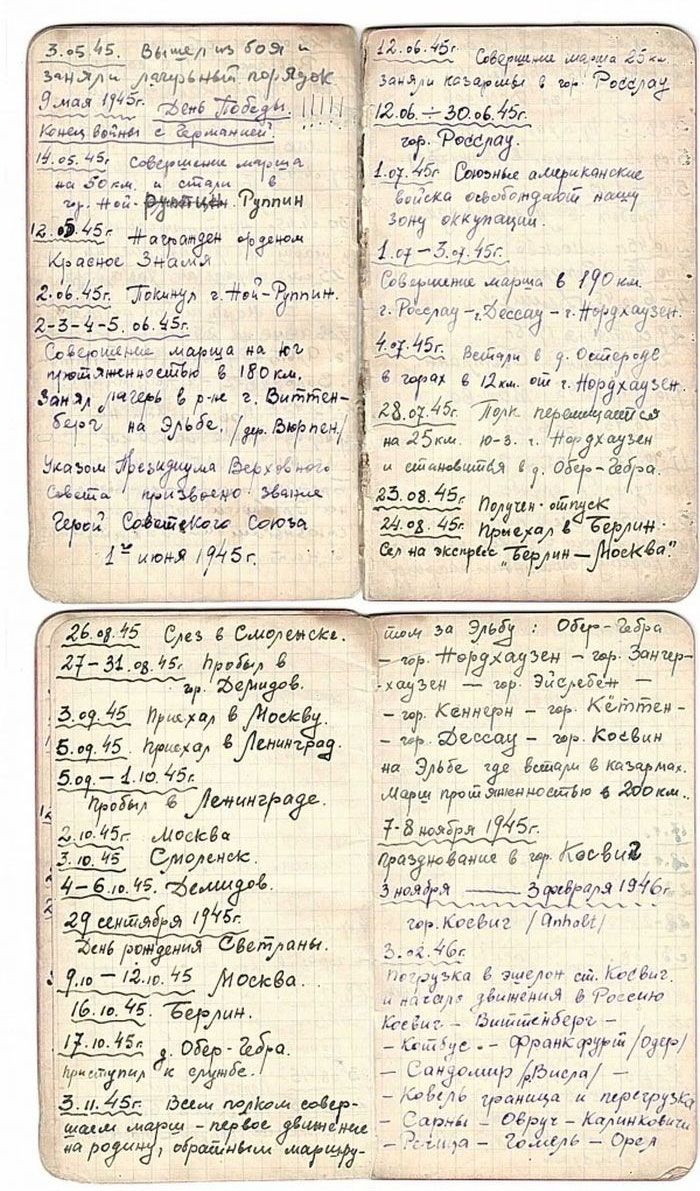 3.05.45. Вышел из боя и
заняли лагерьный порядок
9 мая 1945г. День Победы. !!!!!
Конец войны с Германией.
14.05.45г. Совершение марша
на 50 км. и стали в
гор. Ной- Руппин
12.05.45г. Награжден орденом
Красное Знамя
2.06.45г. Покинул г. Ной-Руппин.
2-3-4-5. 06.45г.
Совершение марша на юг
протяженностью в 180 км.
Занял лагерь в р-не г. Виттен-
берг на Эльбе. /дер. Вюрпен/
Указом Президиума Верховного
Совета присвоено звание
Герой Советского Союза
1го июня 1945г.
12.06.45г. Совершение марша 25 км
заняли казармы в гор. Росслау
12.06. ÷ 30.06.45г.
гор. Росслау.
1.07.45г. Союзные американские
войска освобождают нашу
зону оккупации.
1.07 – 3.07.45г.
Совершение марша в 190 км.
г. Росслау – г. Дессау – г. Нордхаузен.
4.07.45г. Встали в д. Остероде
в горах в 12 км. от г. Нордхаузен.
28.07.45г. Полк перемещается
на 25 км. ю-з. г. Нордхаузен
и становиться в д. Обер-Гебра.
23.08.45г. Получен отпуск
24.08.45г. Приехал в Берлин.
Сел на экспресс „Берлин – Москва".
26.08.45 Слез в Смоленске.
27–31.08.45г. Пробыл в
гор. Демидов.
3.09.45 Приехал в Москву.
5.09.45. Приехал в Ленинград.
5.09. – 1.10.45г.
Пробыл в Ленинграде.
2.10.45г. Москва
3.10.45 Смоленск.
4–6.10.45. Демидов.
29 сентября 1945г.
День рождения Светланы.
9.10 – 12.10.45 Москва.
16.10.45. Берлин.
17.10.45г. д. Обер-Гебра.
приступил к службе.
3.11.45г. Всем полком совер-
шаем марш – первое движение
на родину, обратным маршру-
том за Эльбу : Обер-Гебра
– гор. Нордхаузен – гор. Зангер-
-хаузен – гор. Эйслебен –
– гор. Кеннерн – гор. Кёттен –
– гор. Дессау – гор. Косвин
на Эльбе где встали в казармах.
Марш протяженностью в 200 км..
7-8 ноября 1945г.
Празднование в гор. Косвиг
3 ноября —— 3 февраля 1946г.
гор. Косвиг /Anhalt/
3.02.46г.
Погрузка в эшелон ст. Косвиг.
и начало движения в Россию
Косвиг – Виттенберг –
– Котбус – Франкфурт /Одер/
– Сандомир /р. Висла/ –
– Ковель граница и перегрузка
– Сарны – Овруч – Калинковичи
– Речица – Гомель – Орел